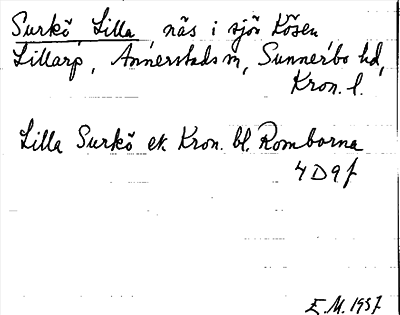 Surkö Lilla näs i sjön Kösen
Lillarp, Annerstads sn, Sunnerbo hd,
Kron. l.
Lilla Surkö ek Kron. bl. Romborna
4 D 9 f
E.M. 1957